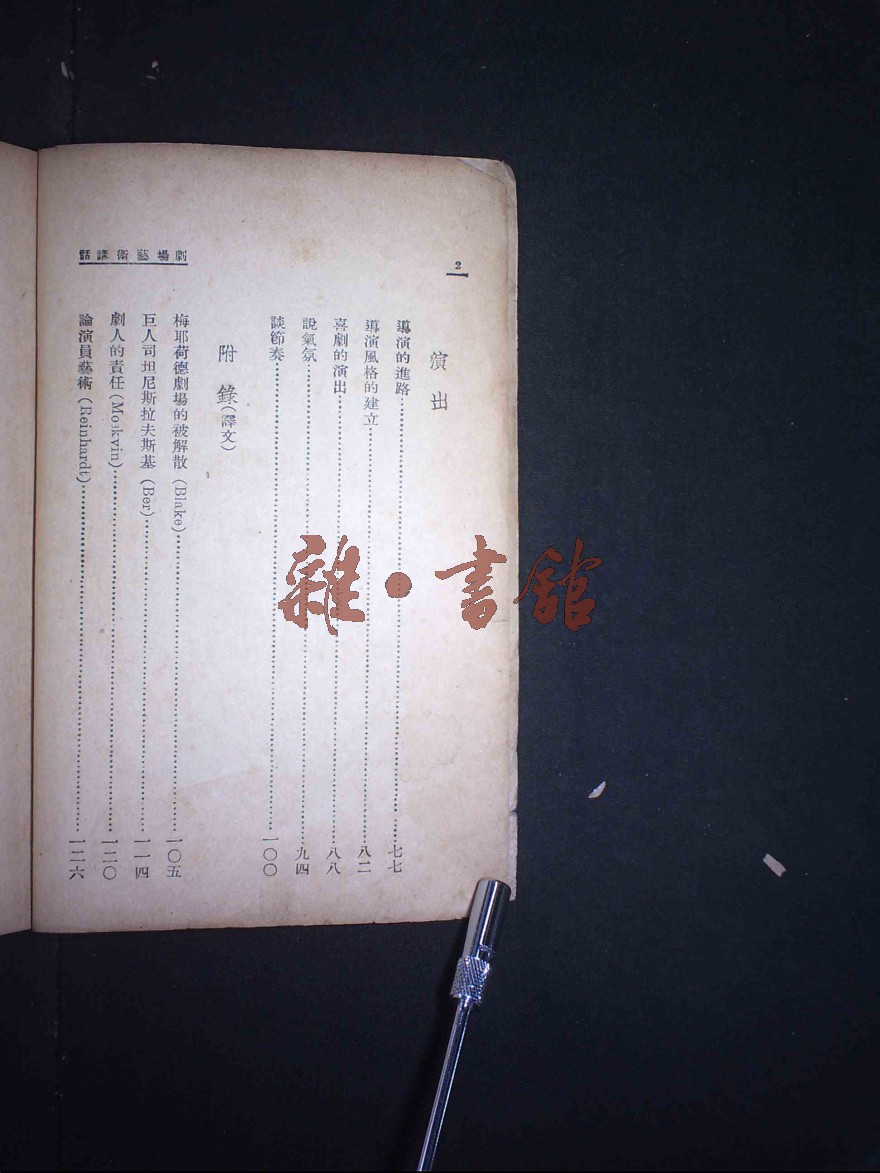 2
劇場藝術講話
演出
導演的進路……七七
導演風格的建立……八二
喜劇的演出……八八
說氣氛……九四
談節奏……一〇〇
附錄(譯文)
梅耶荷德劇場的被解散(Blake)……一〇五
巨人司坦尼斯拉夫斯基(Ber)……一一四
劇人的責任(Moskvin)……一二〇
論演員藝術(Reinhardt)……一二六
雜·書館